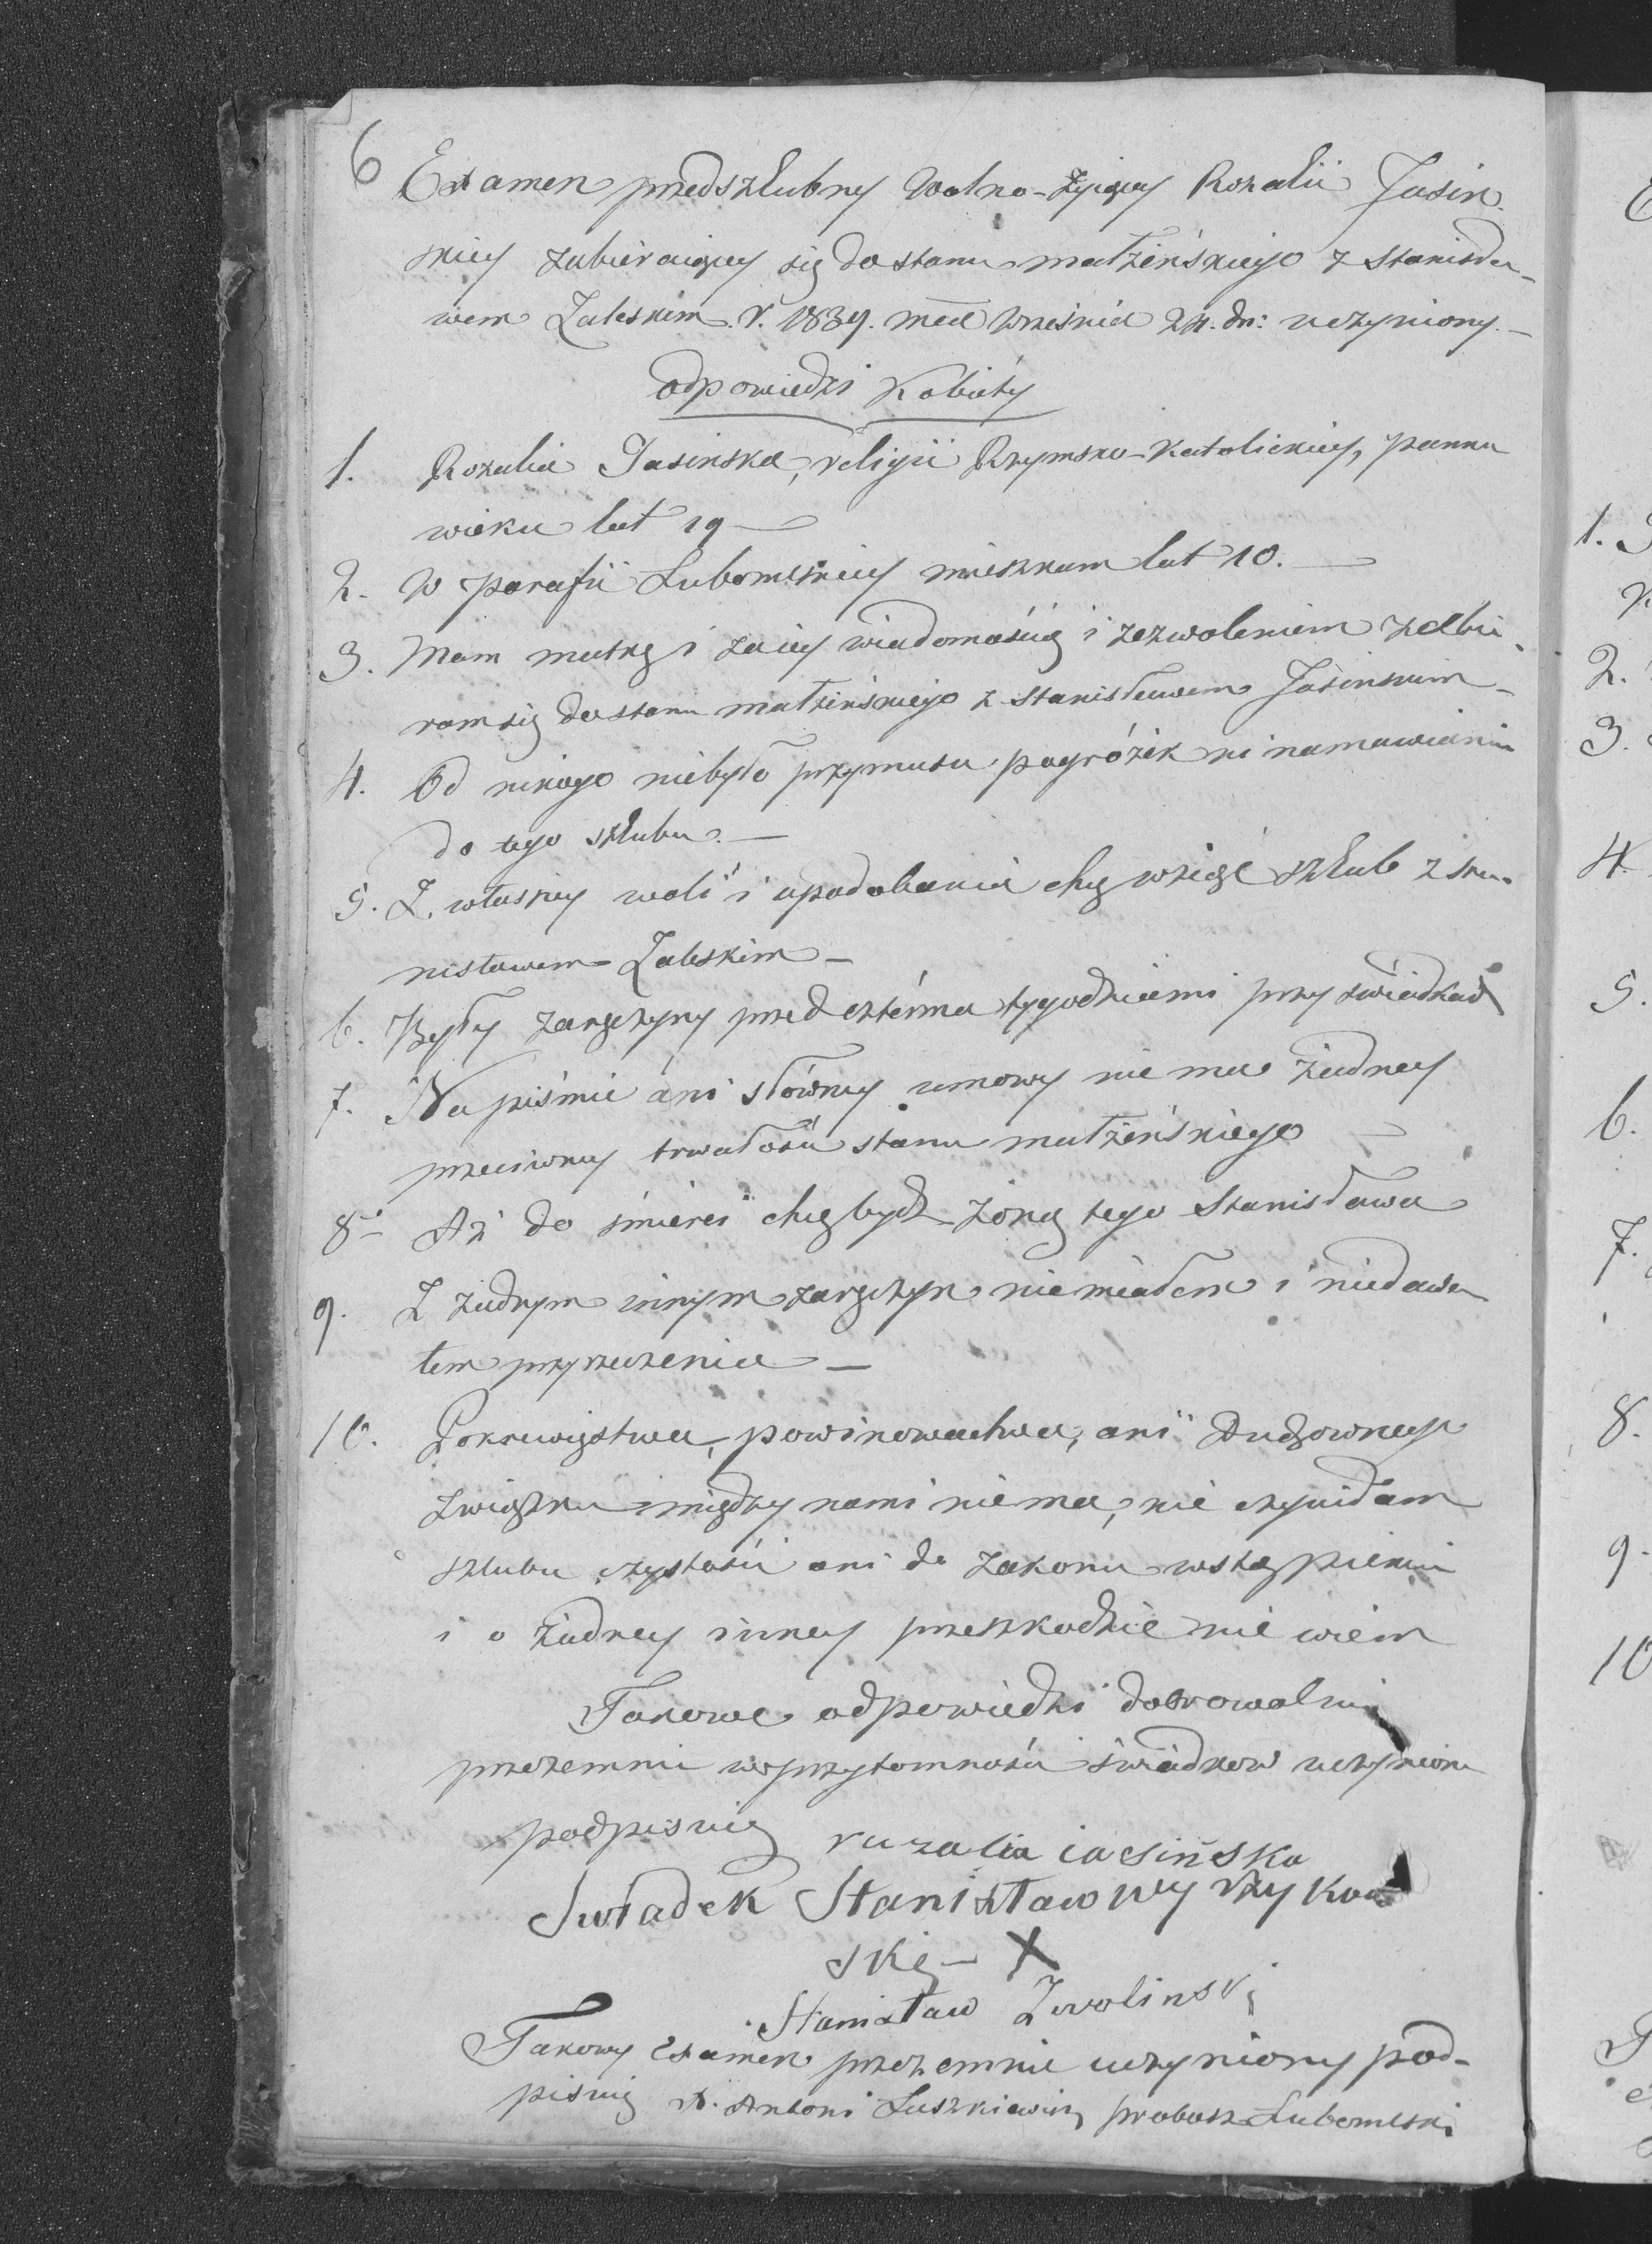 6 Examen przedszlubny Wolno-Żyiącey Rozalii Jasin-
skiey zabieraiącey się do stanu małżeńskiego z Stanisła-
wem Zaleskim. r. 1839. mca Września 24. dn: uczyniony.—
Odpowiedzi Kobiéty
1. Rozalia Jasinska, religii Rzymsko-Katolickiey, panna
wieku lat 19—
2. W parafii Lubomlskiey mieszkam lat 10.—
3. Mam matkę i za iey wiadomością i zezwoleniem zabie-
ram się do stanu małżeńskiego z Stanisławem Jasinskim—
4. Od nikogo niebyło przymusu pogróżek ni namawiania
do tego szlubu.—
5. Z własney woli i upodobania chcę wziąść szlub z Sta-
nisławem Zaleskim—
6. Były zaręczyny przed cztérma tygodniami przy świadkach
7. Na piśmie ani słowney umowy nie ma żadney
przeciwney trwałości stanu małżeńskiego—
8. Aż do śmierci chcę bydź żoną tego Stanisława
9. Z żadnym innym zaręczyn niemiałem i niedawa-
łem przyrzeczenia—
10. Pokrewięstwa, powinowactwa, ani Duchownego
związku między nami niema, nie czyniłam
szlubu czystości ani do zakonu wstąpienia
i o żadney inney przeszkodzie nie wiem
Takowe odpowiedzi dobrowolnie
przezemnie w przytomności świadkow uczynione
podpisuię ruzalia iasińska
Swiadek Stanisław wyrzykow
ski— X
Stanisław Zwolinski
Takowy Examen przezemnie uczyniony pod-
pisuię X. Antoni Łuszkiewicz proboszcz Lubomlski